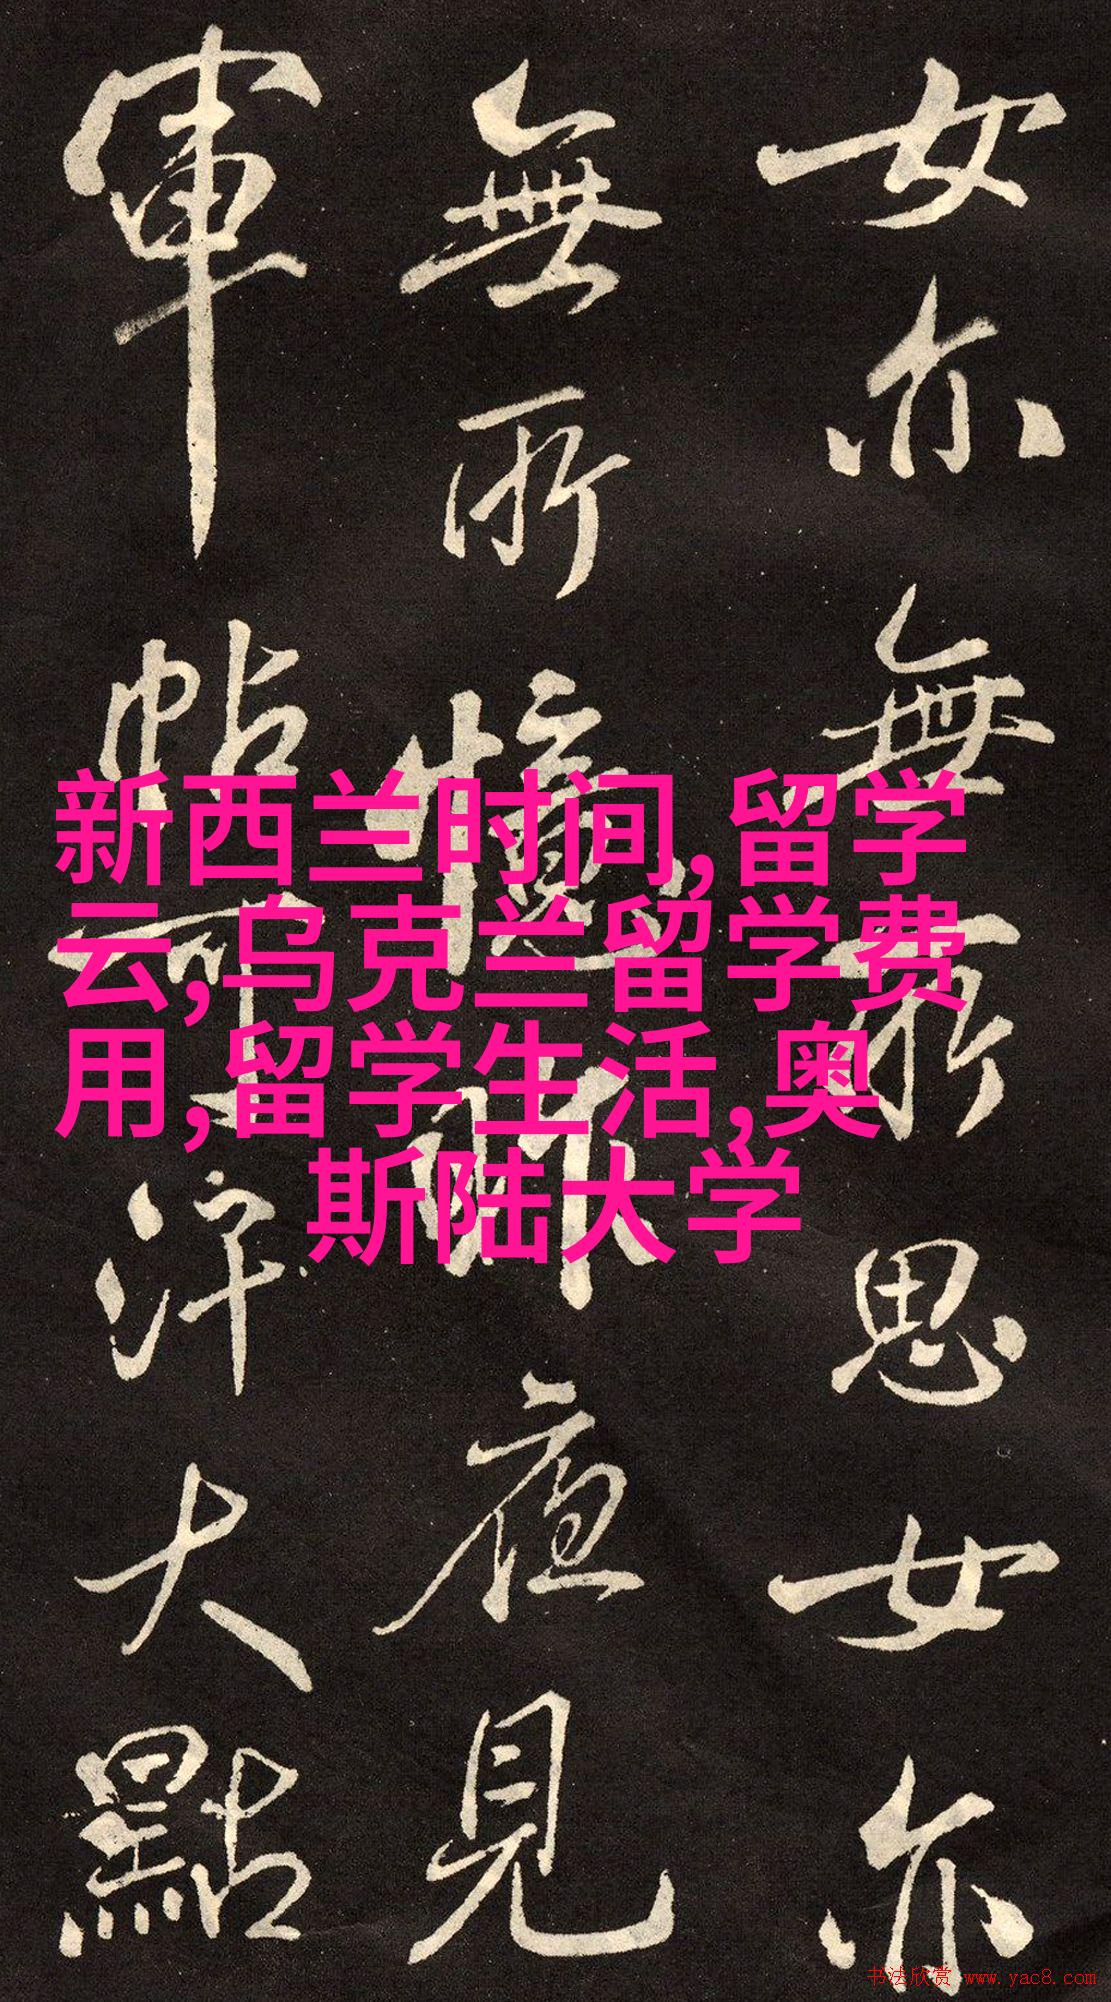 女亦無所思女亦
無所憶昨夜見
軍帖可汗大點
新西兰时间,留学
云,乌克兰留学费
用,留学生活,奥
斯陆大学
书法欣赏 www.yac8.com